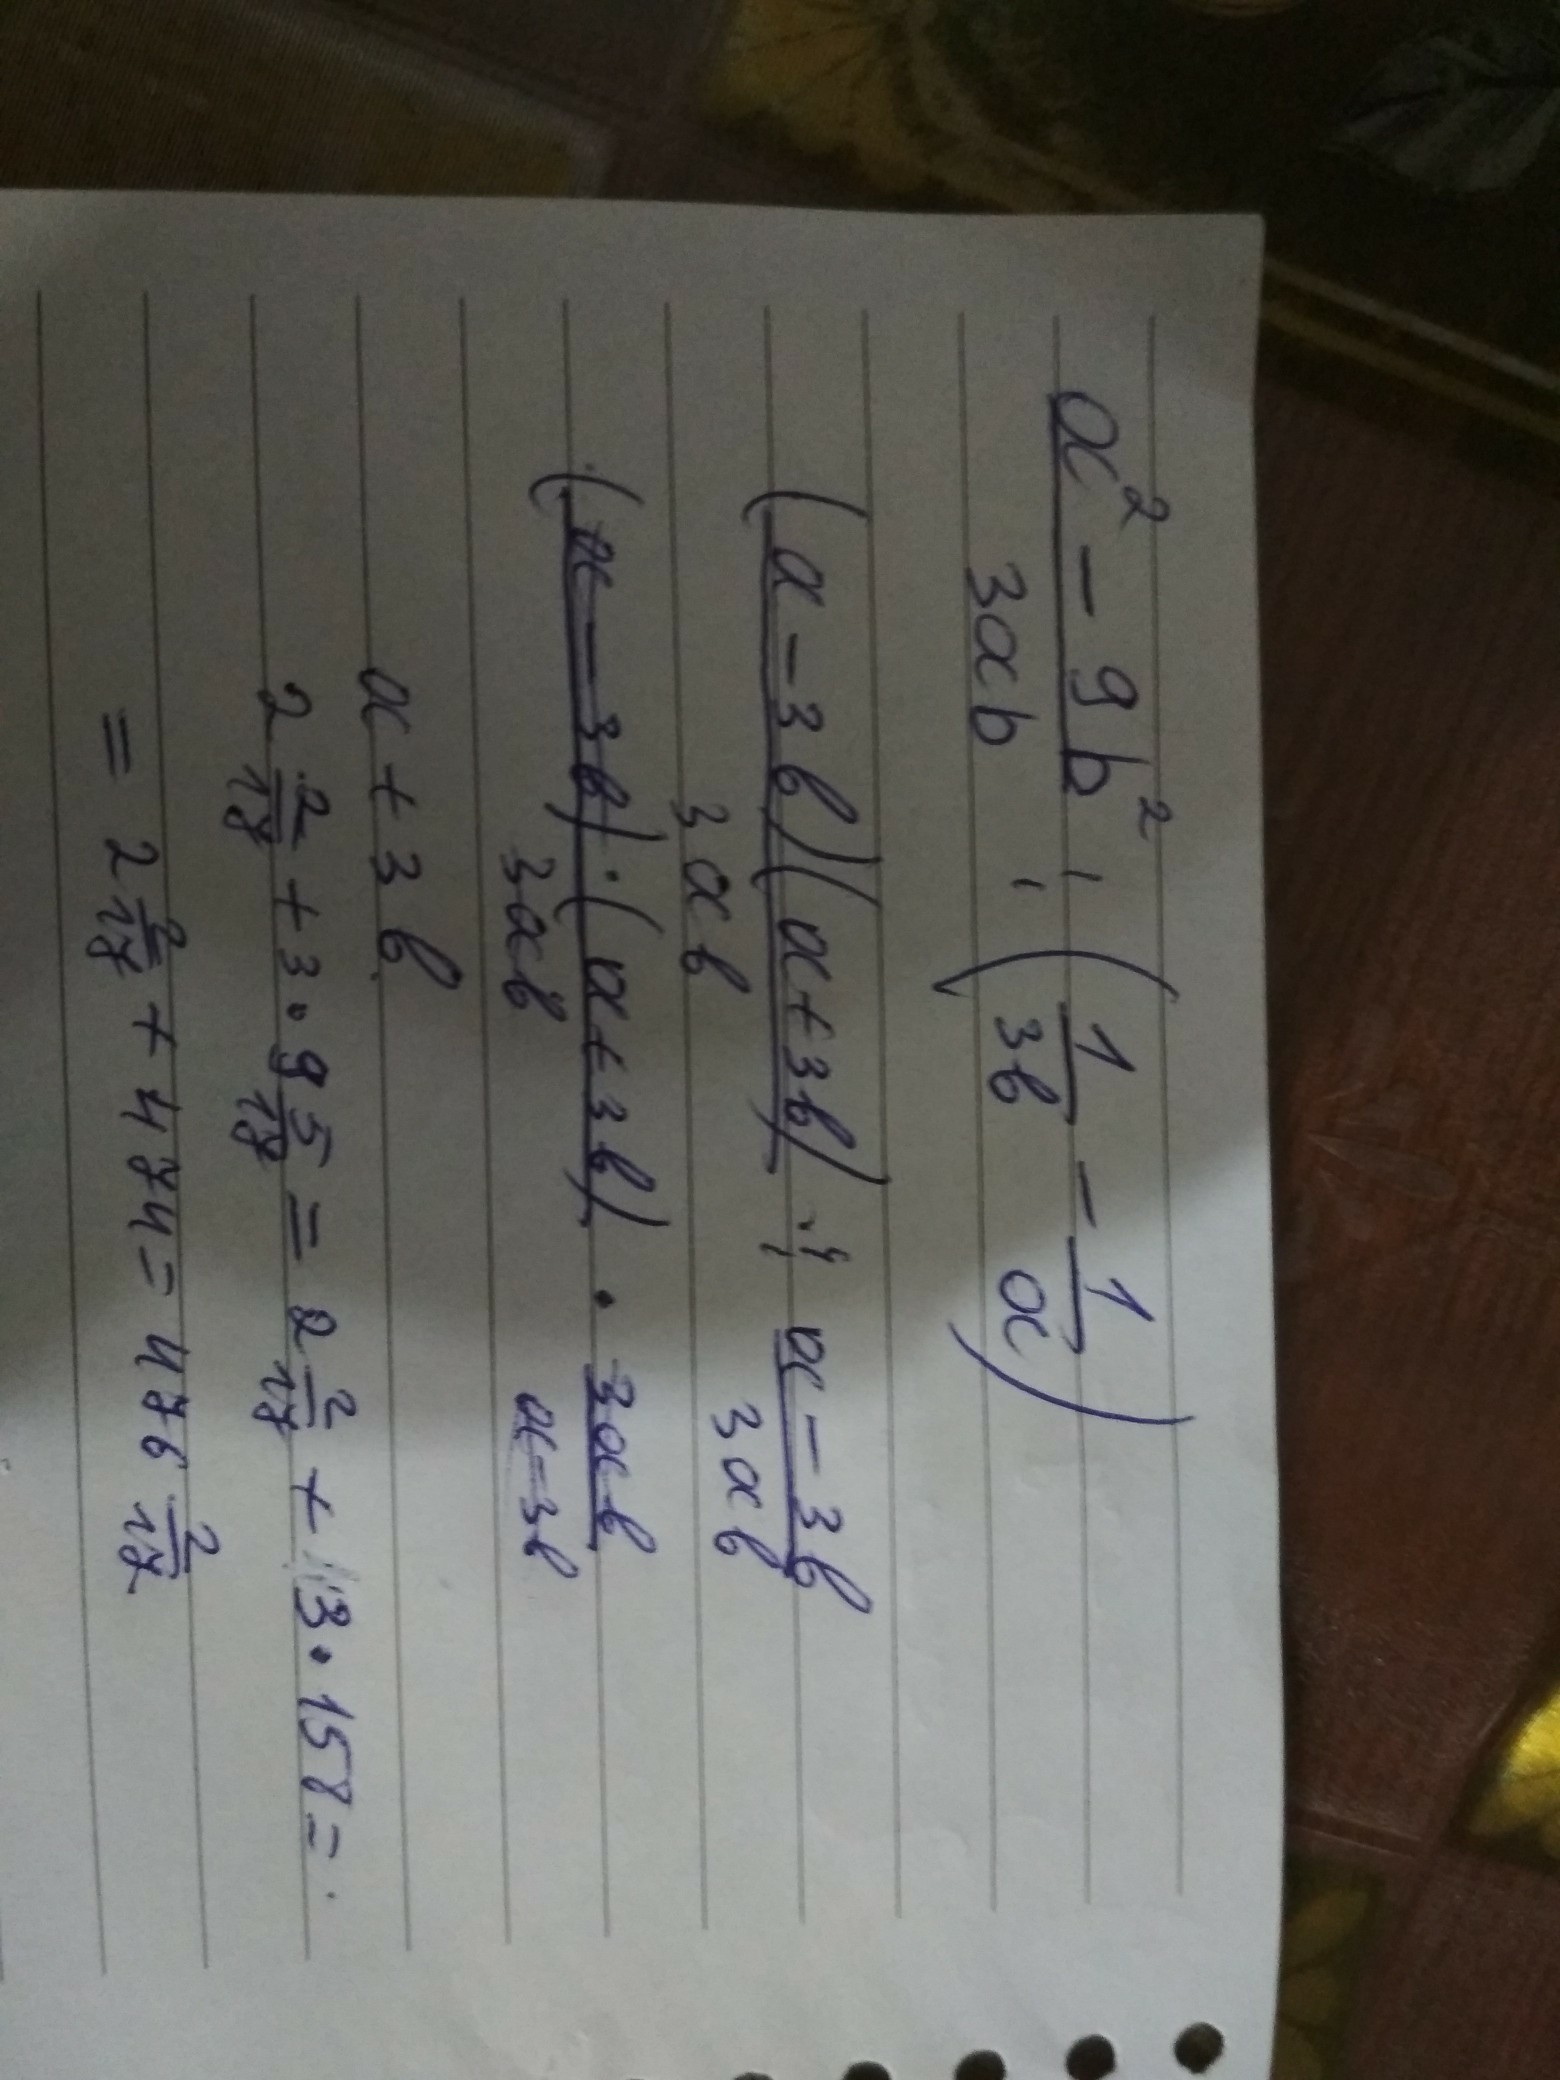 a² - 9b² / 3ab : (1/3в - 1/a)
(a - 3в)(a + 3в) / 3aв : a - 3в / 3aв
(a - 3в) · (a + 3в) / 3aв · 3aв / a - 3в
a + 3в
2 2/17 + 3 · 9 5/17 = 2 2/17 + 3 · 158 =
= 2 2/17 + 474 = 476 2/17